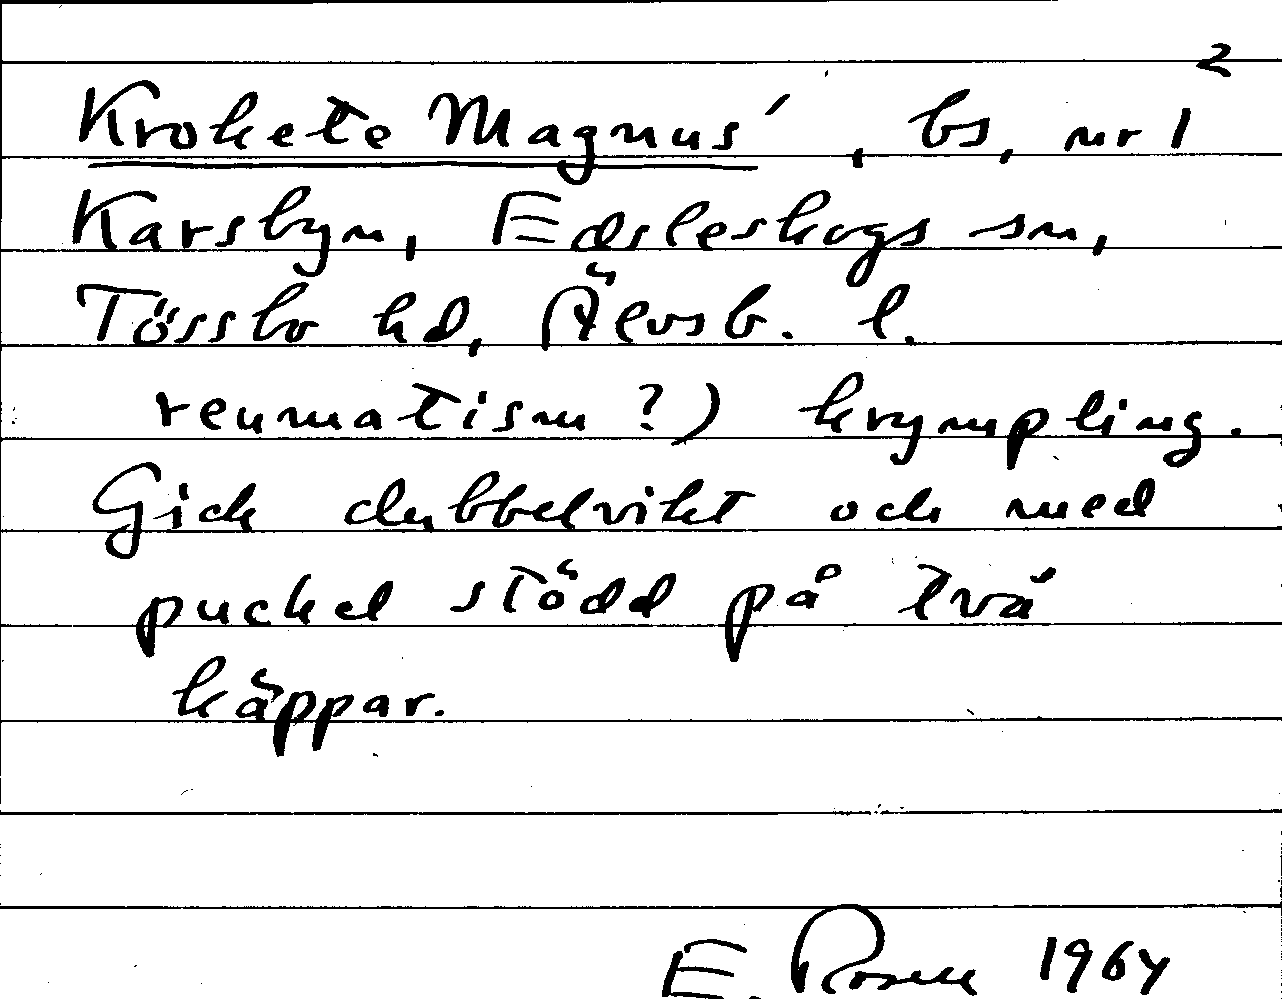 2
Krokete Magnus´, bs, nr 1
Karsbyn, Edsleskogs sn,
Tössbo hd, Älvsb. l.
reumatism ?) krympling.
Gick dubbelvikt och med
puckel stödd på två
käppar.
E. Rosell 1964